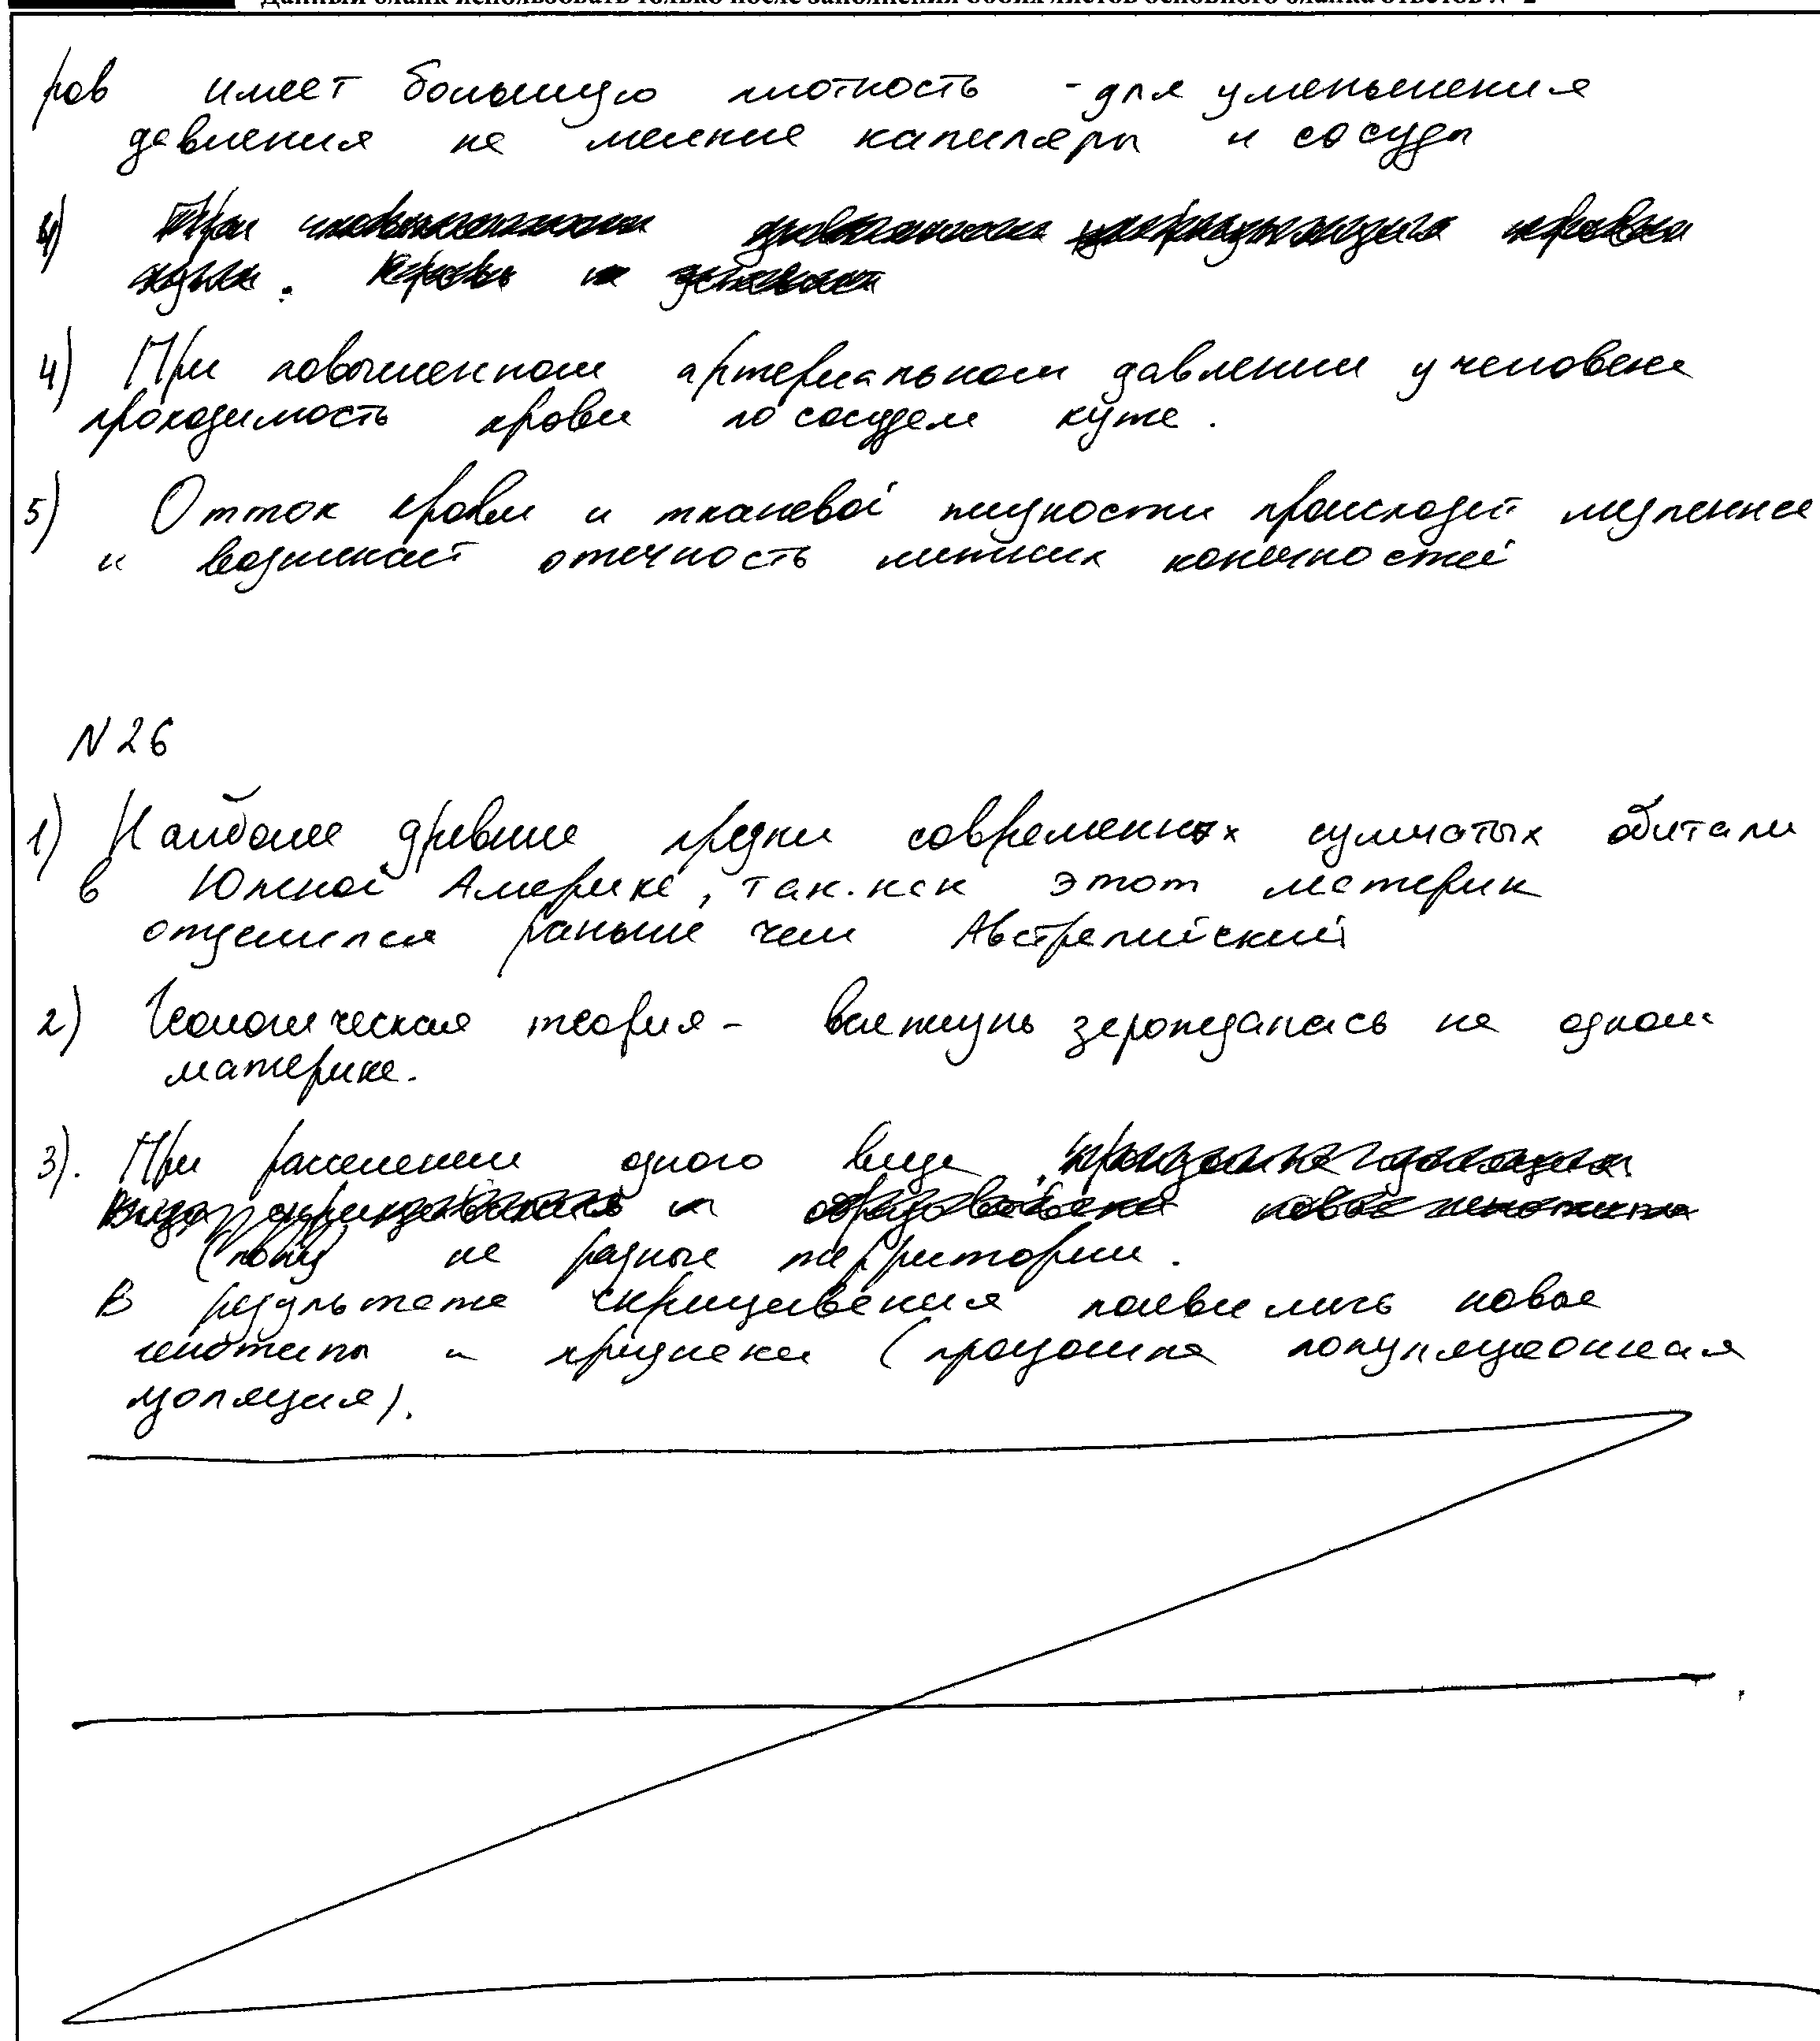 Данный бланк использовать только после заполнения обоих листов основного бланка ответов № 2
ров имеет большую плотность - для уменьшения
давления на мелкие капиляры и сосуды
4) При
4) При повышенном артериальном давлении у человека
проходимость крови по сосудам хуже.
5) Отток крови и тканевой жидкости происходит медленнее
и возникает отечность нижних конечностей
N 26
1) Наиболее древние предки современных сумчатых обитали
в Южной Америке, так.как этот материк
отделился раньше чем Австралийский
2) Геологическая теория - валжунь зерождалась на одном
материке.
3). При расселении одного вида
и
на разные территории.
В результате скрищивения появились новые
генотипы и признаки (произошла популяционная
изоляция).